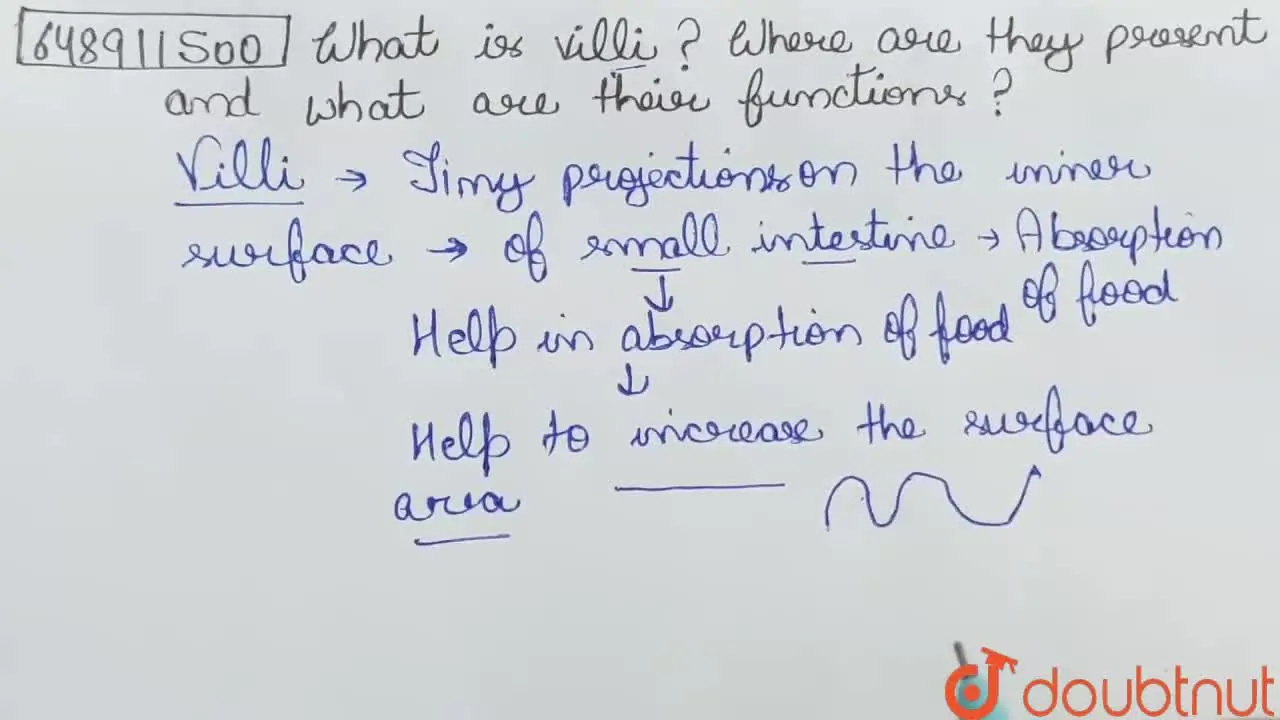 648911500 What is villi? Where are they present
and what are their functions?
Villi → Tiny projections on the inner
surface → of small intestine → Absorption
of food
↓
Help in absorption of food
↓
Help to increase the surface
area
doubtnut